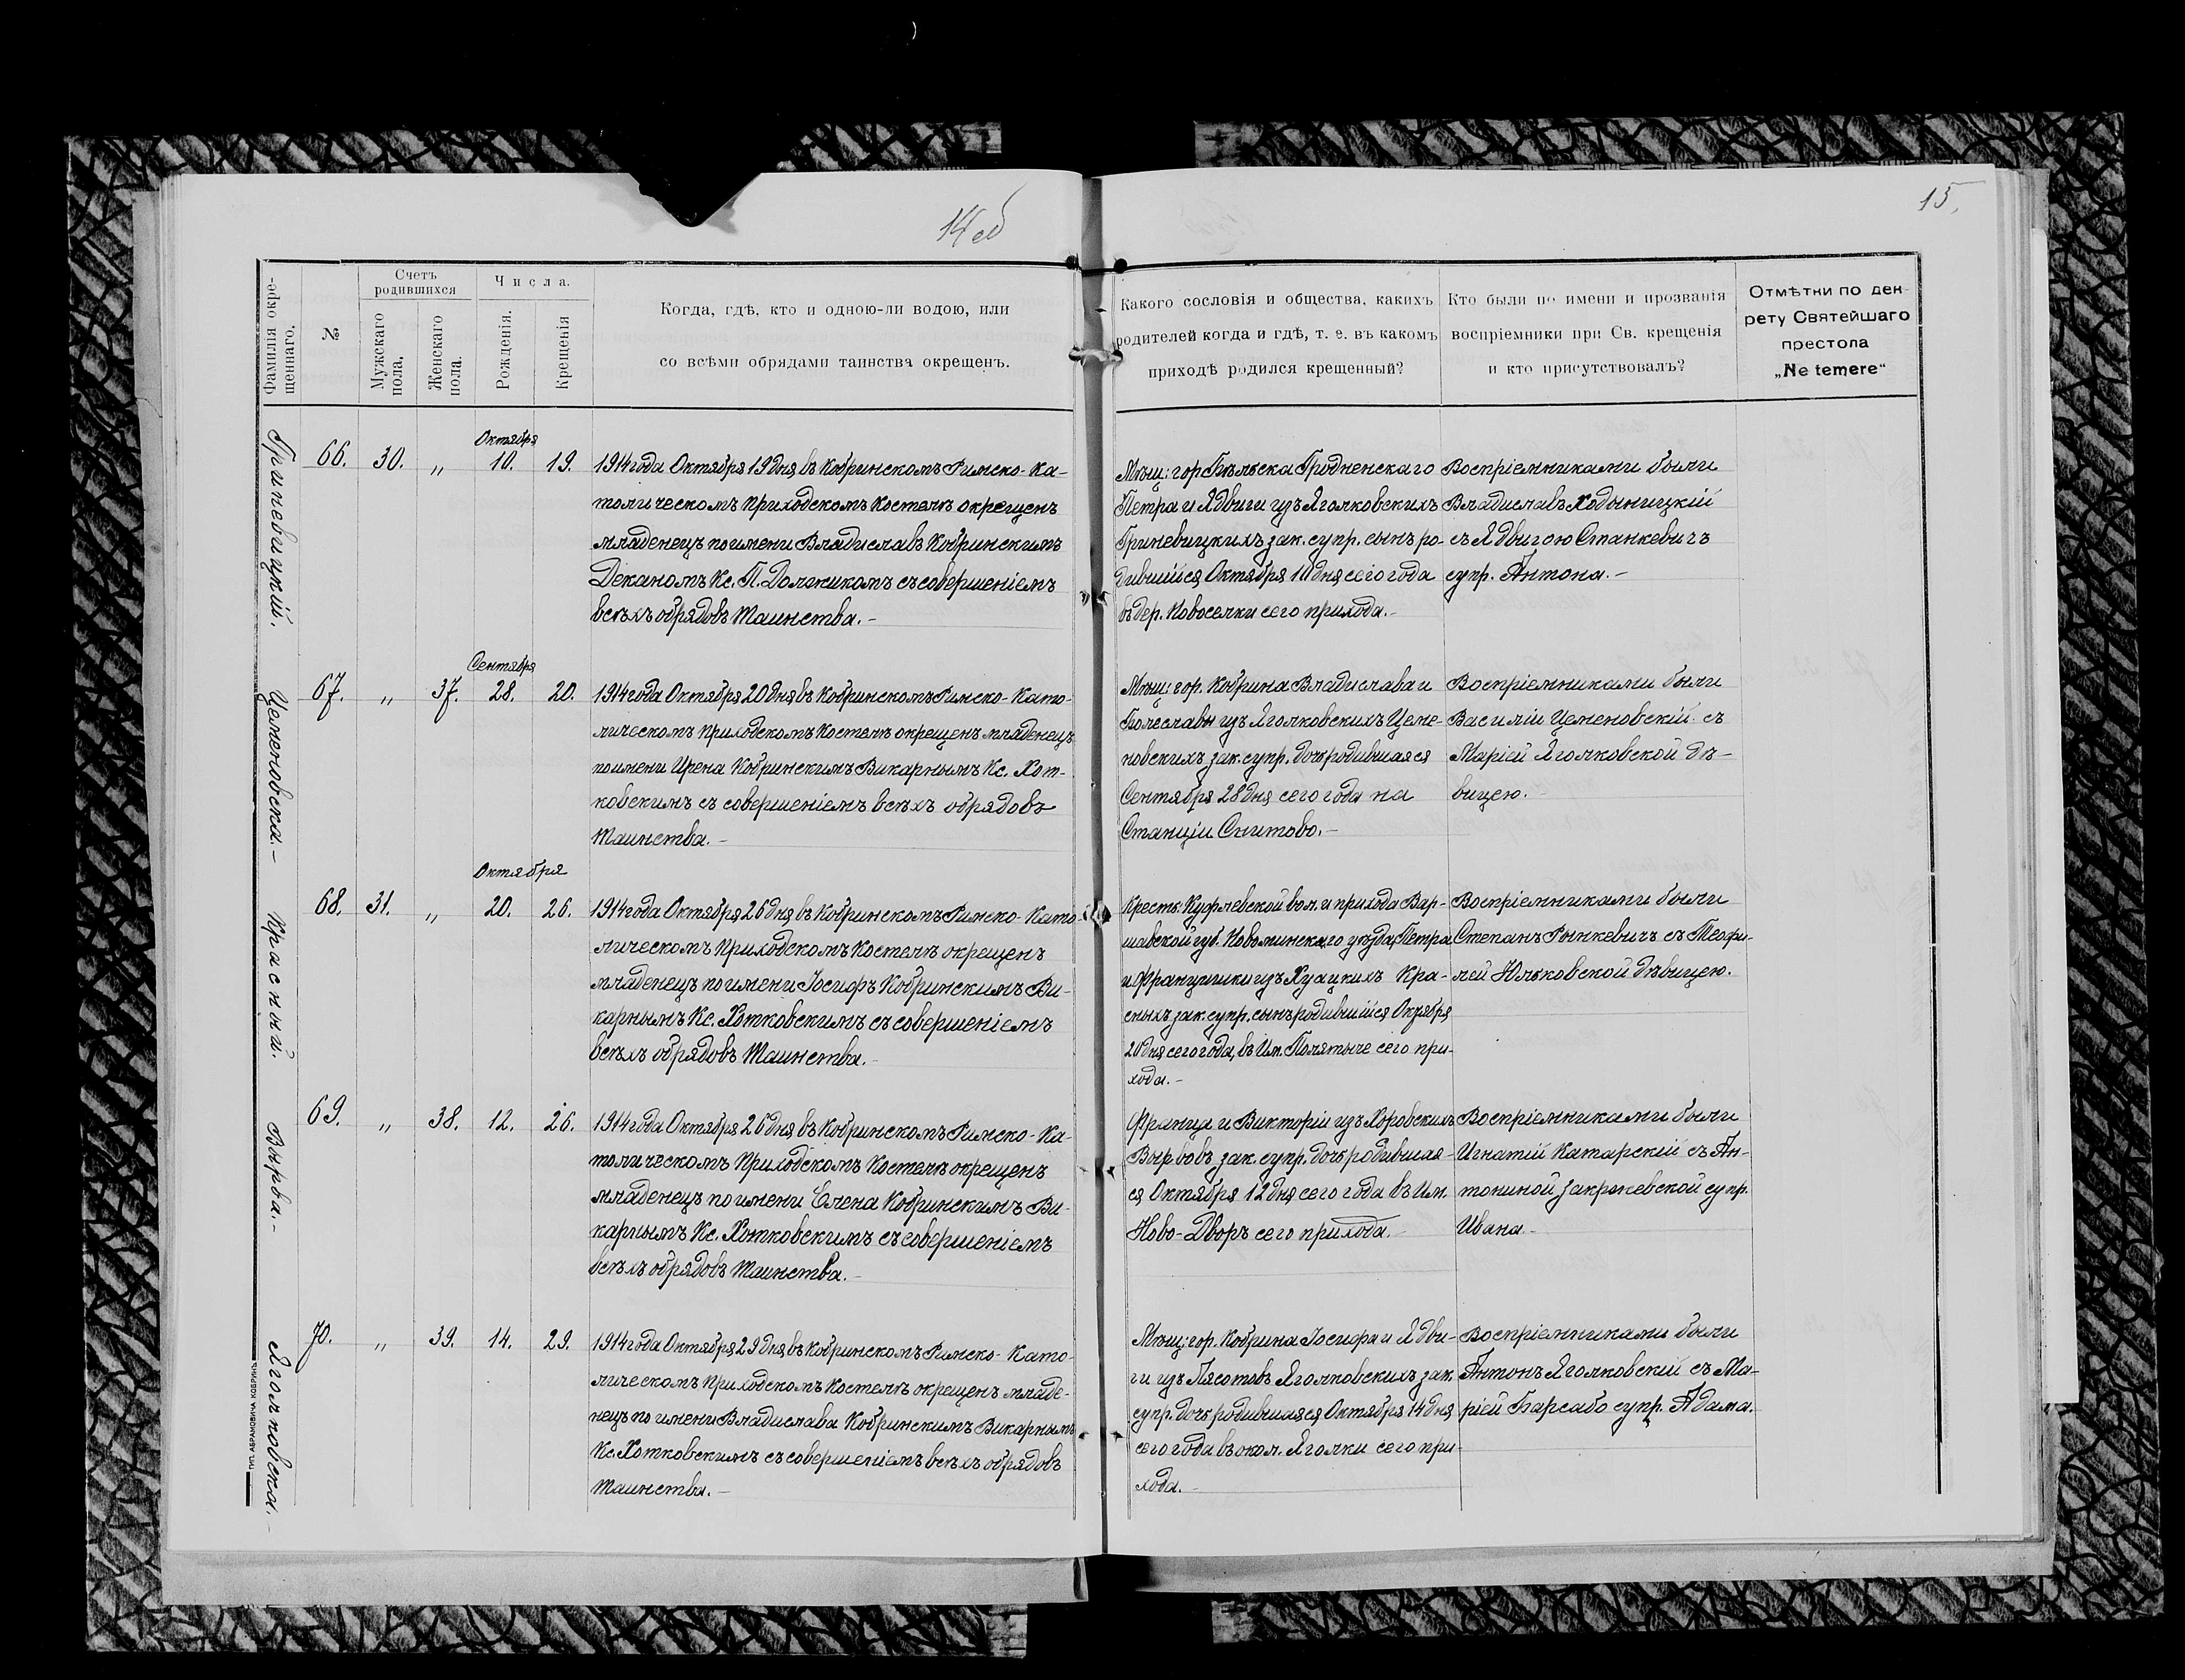 14 об
15.
Фамилія окре-
щеннаго.
№
Счетъ
родившихся
Мужскаго
пола.
Женскаго
пола.
Числа.
Рожденія.
Крещенія
Когда, гдѣ, кто и одною-ли водою, или
со всѣми обрядами таинства окрещенъ.
Какого сословія и общества, какихъ
родителей когда и гдѣ, т. е. въ какомъ
приходѣ родился крещенный?
Кто были по имени и прозванія
воспріемники при Св. крещенія
и кто присутствовалъ?
Отмѣтки по дек-
рету Святейшаго
престола
„Ne temere“
Гриневицкій.
66. 30. „ Октября 10. 19.
1914 года Октября 19 дня въ Кобринскомъ Римско-Ка-
толическомъ Приходскомъ Костелѣ окрещенъ
младенецъ по имени Владиславъ Кобринскимъ
Деканомъ Кс. П. Долженкомъ съ совершеніемъ
всѣхъ обрядовъ Таинства.-
Мѣщ: гор. Бѣльска Гродненскаго
Петра и Ядвиги изъ Яголковскихъ
Гриневицкихъ зак. супр. сынъ ро-
дившійся Октября 10 дня сего года
въ дер. Новоселки сего прихода.-
Воспріемниками были
Владиславъ Ходыницкій
съ Ядвигою Станкевичъ
супр. Антона.-
Цеменовска.-
67. „ 37. Сентября 28. 20.
1914 года Октября 20 дня въ Кобринскомъ Римско-Като-
лическомъ Приходскомъ Костелѣ окрещенъ младенецъ
по имени Ирена Кобринскимъ Викарнымъ Кс. Хот-
ковскимъ съ совершеніемъ всѣхъ обрядовъ
Таинства.-
Мѣщ: гор. Кобрина Владислава и
Болеславы изъ Яголковскихъ Цеме-
новскихъ зак. супр. дочь родившаяся
Сентября 28 дня сего года на
Станціи Снитово.-
Воспріемниками были
Василіи Цеменовскій съ
Маріей Яголковской дѣ-
вицею.-
Красный.
68. 31. „ Октября 20. 26.
1914 года Октября 26 дня въ Кобринскомъ Римско-Като-
лическомъ Приходскомъ Костелѣ окрещенъ
младенецъ по имени Іосифъ Кобринскимъ Ви-
карнымъ Кс. Хотковскимъ съ совершеніемъ
всѣхъ обрядовъ Таинства.-
Крест. Куфлевской вол. и прихода Вар-
шавской губ. Новоминскаго уѣзда Петра
и Францишки изъ Кра-
сныхъ зак. супр. сынъ родившійся Октября
20 дня сего года, въ Им. Полятыче сего при-
хода.-
Воспріемниками были
Степанъ Рынкевичъ съ Теофи-
лей Юльковской дѣвицею.
Вырва.-
69. „ 38. 12. 26.
1914 года Октября 26 дня въ Кобринскомъ Римско-Ка-
толическомъ Приходскомъ Костелѣ окрещенъ
младенецъ по имени Елена Кобринскимъ Ви-
карнымъ Кс. Хотковскимъ съ совершеніемъ
всѣхъ обрядовъ Таинства.-
Франца и Викторіи изъ Хоровскихъ
Вырвовъ зак. супр. дочь родившая-
ся Октября 12 дня сего года въ Им.
Ново-Дворъ сего прихода.-
Воспріемниками были
Игнатій Катарскій съ Ан-
тониной Закржевской супр.
Ивана-
Яголковска.-
70. „ 39. 14. 29.
1914 года Октября 29 дня въ Кобринскомъ Римско-Като-
лическомъ Приходскомъ Костелѣ окрещенъ младе-
нецъ по имени Владислава Кобринскимъ Викарнымъ
Кс. Хотковскимъ съ совершеніемъ всѣхъ обрядовъ
Таинства.-
Мѣщ: гор. Кобрина Іосифа и Ядви-
ги изъ Пясотовъ Яголковскихъ зак.
супр. дочь родившаяся Октября 14 дня
сего года въ окол. Яголки сего при-
хода.-
Воспріемниками были
Антонъ Яголковскій съ Ма-
ріей Барсабо супр. Адама.
ТИП. АБРАМОВИЧА КОБРИНЪ